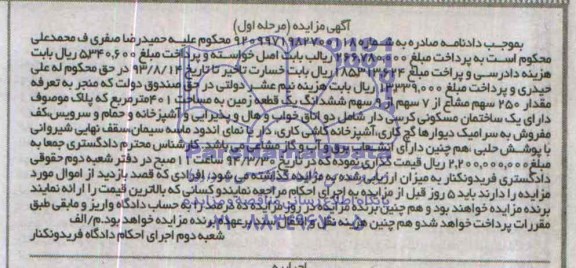 آگهی مزایده (مرحله اول)
بموجب دادنامه صادره به محکوم علیه حمیدرضا صفری ف محمدعلی
محکوم است به پرداخت مبلغ ریال بابت اصل خواسته و پرداخت مبلغ ۵۳۴۰,۶۰۰ ریال بابت
هزینه دادرسی و پرداخت مبلغ ریال بابت خسارت تاخیر تا تاریخ ۹۳/۸/۱۴ در حق محکوم له علی
حیدری و پرداخت مبلغ ریال بابت هزینه نیم عشر دولتی در حق صندوق دولت که منجر به تعرفه
مقدار ۲۵۰ سهم مشاع از ۷ سهم سهم ششدانگ یک قطعه زمین به مساحت ۴۰۱ مترمربع که پلاک موصوف
دارای یک ساختمان مسکونی کرسی دار شامل دو اتاق خواب و هال و پذیرایی و آشپزخانه و حمام و سرویس، کف
مفروش به سرامیک دیوارها گچ کاری، آشپزخانه کاشی کاری، دارای نمای اندود ماسه سیمان سقف نهایی شیروانی
با پوشش حلبی، هم چنین دارای انشعاب برق و آب و گاز مشاعی می باشد. کارشناس محترم دادگستری جمعا به
مبلغ ۲,۲۰۰,۰۰۰,۰۰۰ ریال قیمت گذاری نموده که در تاریخ ساعت ۱۱ صبح در دفتر شعبه دوم حقوقی
دادگستری فریدونکنار به میزان ارزیابی شده به مزایده گذاشته می شود، افرادی که قصد بازدید از اموال مورد
مزایده را دارند باید ۵ روز قبل از مزایده به اجرای احکام مراجعه نمایند و کسانی که بالاترین قیمت را ارائه نمایند
برنده مزایده خواهند بود و هم چنین برنده مزایده در روز مزایده ده درصد به حساب دادگاه واریز و مابقی طبق
مقررات پرداخت خواهد شد و هم چنین هزینه نقل و انتقال سند بر عهده برنده مزایده خواهد بود. م/الف
شعبه دوم اجرای احکام دادگاه فریدونکنار